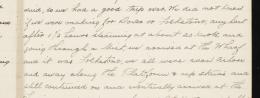 said, so we had a good trip over. We did not know
if we were making for Dover or Folkstone, anyhow
after 1½ hours steaming at about 20 knots and
going through a Mist we arrived at the Wharf
and it was Folkstone, we all were soon ashore
and away along the Platform & up stairs and
still continued on and eventually arrived at the